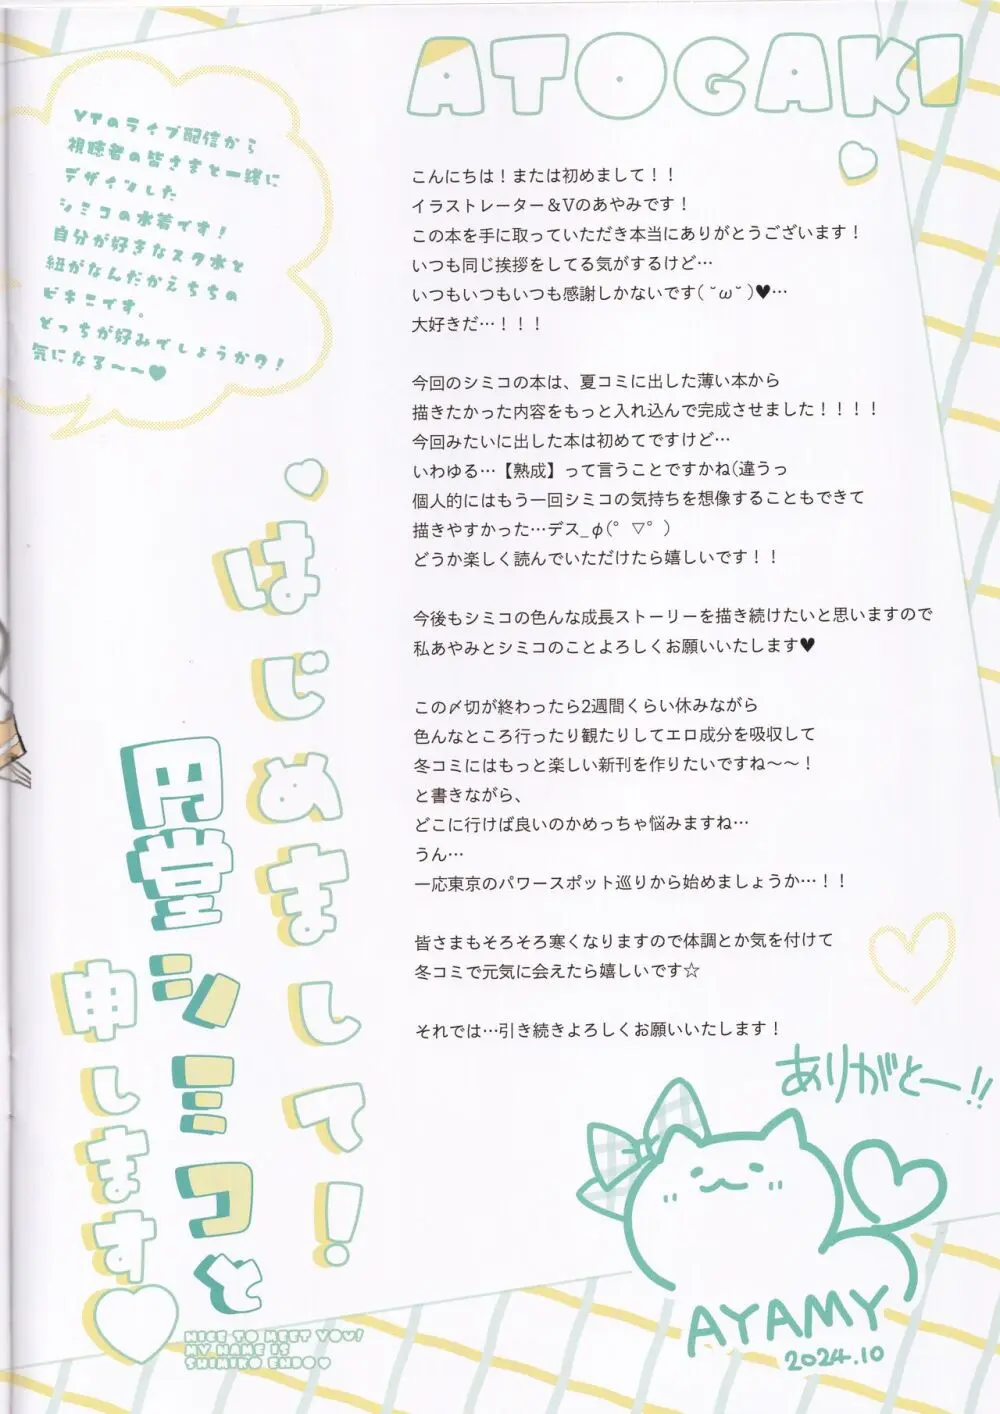 ATOGAKI
VTのライブ配信から
視聴者の皆さまと一緒に
デザインした
シミコの水着です！
自分が好きなスク水と
紐がなんだかえちちの
ビキニです。
どっちが好みでしょうか？！
気になる〜〜♥
こんにちは！または初めまして！！
イラストレーター＆Vのあやみです！
この本を手に取っていただき本当にありがとうございます！
いつも同じ挨拶をしてる気がするけど…
いつもいつもいつも感謝しかないです( ˘ω˘ )♥…
大好きだ…！！！
今回のシミコの本は、夏コミに出した薄い本から
描きたかった内容をもっと入れ込んで完成させました！！！！
今回みたいに出した本は初めてですけど…
いわゆる…【熟成】って言うことですかね(違うっ
個人的にはもう一回シミコの気持ちを想像することもできて
描きやすかった…デス_φ(ﾟ▽ﾟ)
どうか楽しく読んでいただけたら嬉しいです！！
今後もシミコの色んな成長ストーリーを描き続けたいと思いますので
私あやみとシミコのことよろしくお願いいたします♥
この〆切が終わったら2週間くらい休みながら
色んなところ行ったり観たりしてエロ成分を吸収して
冬コミにはもっと楽しい新刊を作りたいですね〜〜！
と書きながら、
どこに行けば良いのかめっちゃ悩みますね…
うん…
一応東京のパワースポット巡りから始めましょうか…！！
皆さまもそろそろ寒くなりますので体調とか気を付けて
冬コミで元気に会えたら嬉しいです☆
それでは…引き続きよろしくお願いいたします！
はじめまして！
円堂シミコと
申します♡
NICE TO MEET YOU!
MY NAME IS
SHIMIKO ENDO♥
ありがとー!!
AYAMY
2024.10